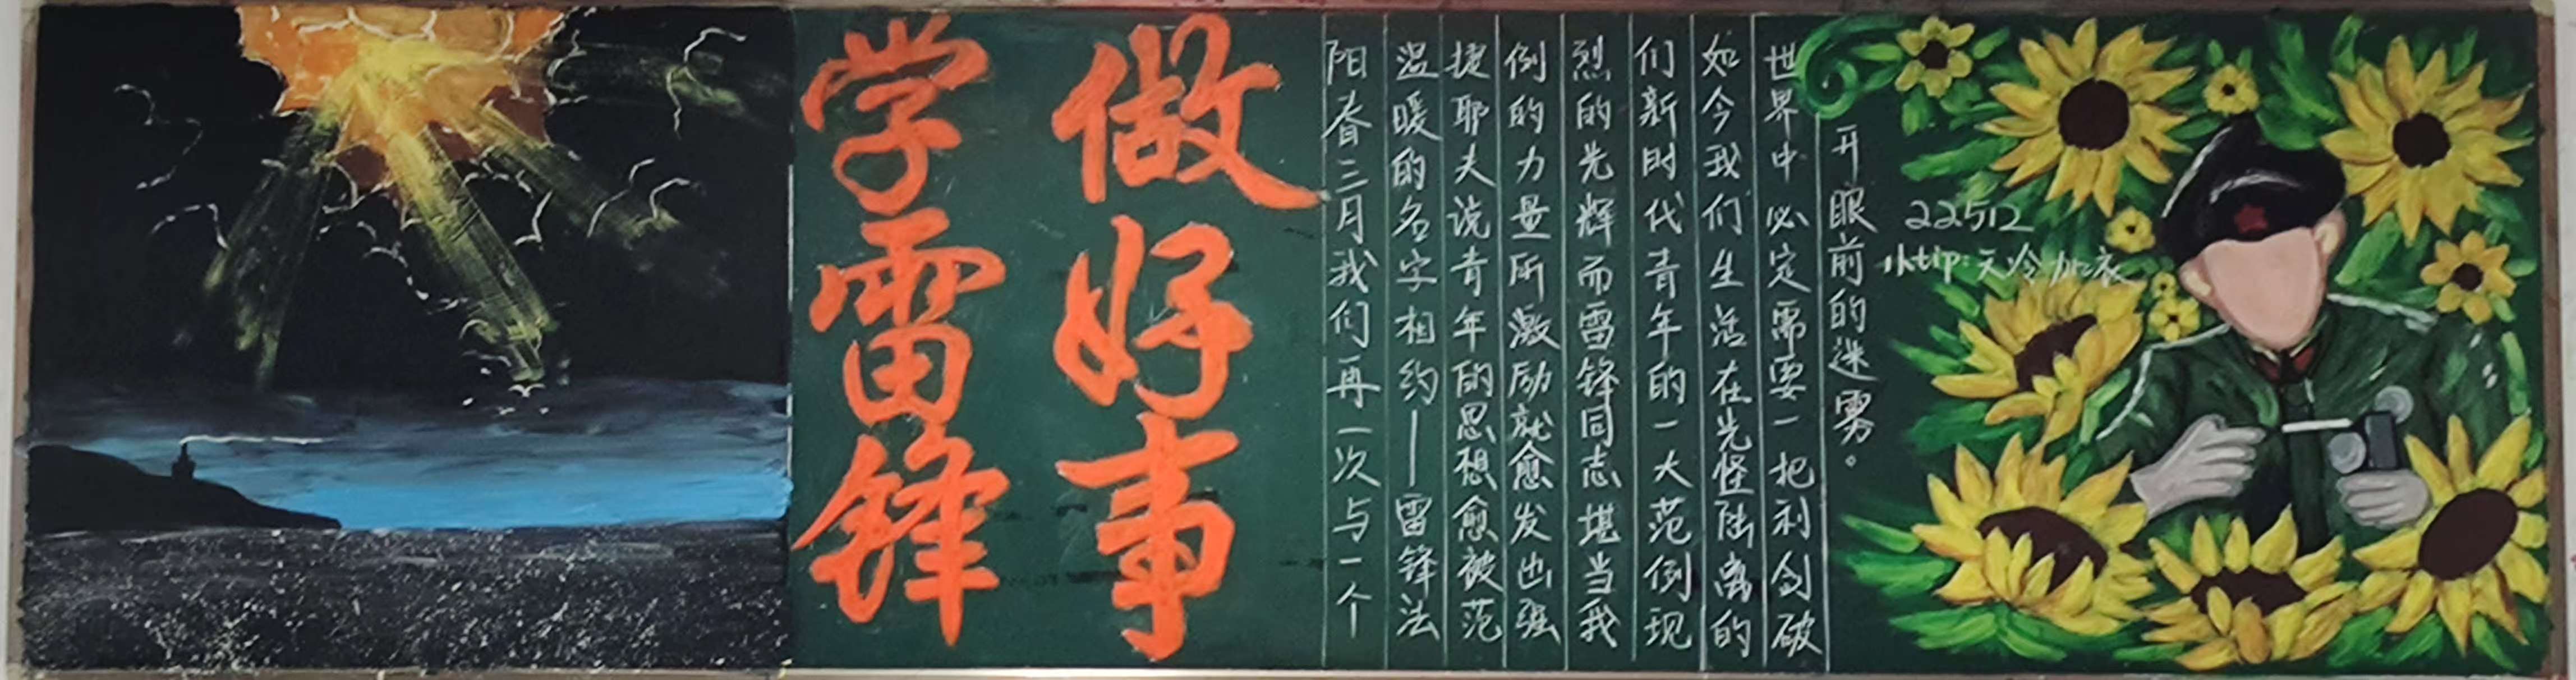 学雷锋
做好事
阳春三月我们再一次与一个
温暖的名字相约——雷锋法
捷耶夫说青年的思想愈被范
例的力量所激励就愈发出强
烈的光辉而雷锋同志堪当我
们新时代青年的一大范例现
如今我们生活在光怪陆离的
世界中必定需要一把利剑破
开眼前的迷雾。
22512
天冷加衣